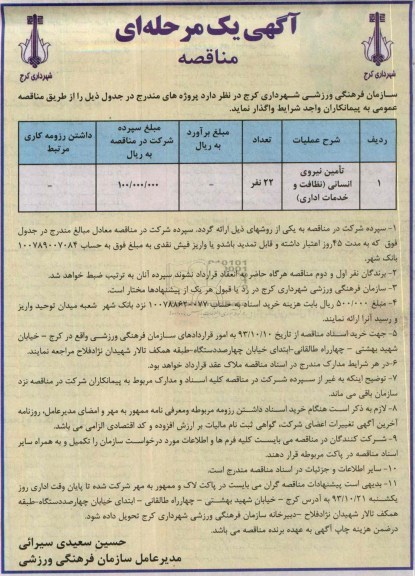 آگهی یک مرحله‌ای
مناقصه
شهرداری کرج
شهرداری کرج
سـازمان فرهنگی ورزشـی شـهرداری کرج در نظر دارد پروژه های مندرج در جدول ذیل را از طریق مناقصه
عمومی به پیمانکاران واجد شرایط واگذار نماید.
ردیف
شرح عملیات
تعداد
مبلغ برآورد به ریال
مبلغ سپرده شرکت در مناقصه به ریال
داشتن رزومه کاری مرتبط
۱
تأمین نیروی انسانی (نظافت و خدمات اداری)
۲۲ نفر
-
۱۰۰/۰۰۰/۰۰۰
-
۱- سپرده شرکت در مناقصه به یکی از روشهای ذیل ارائه گردد. سپرده شرکت در مناقصه معادل مبالغ مندرج در جدول
فوق که به مدت ۴۵روز اعتبار داشته و قابل تمدید باشدو یا واریز فیش نقدی به مبلغ فوق به حساب ۱۰۰۷۸۹۰۰۷۰۸۴
بانک شهر.
۲- برندگان نفر اول و دوم مناقصه هرگاه حاضر به انعقاد قرارداد نشوند سپرده آنان به ترتیب ضبط خواهد شد.
۳- سازمان فرهنگی ورزشی شهرداری کرج در رد یا قبول هر یک از پیشنهادها مختار است.
۴- مبلغ ۵۰۰/۰۰۰ ریال بابت هزینه خرید اسناد به حساب نزد بانک شهر شعبه میدان توحید واریز
و رسید آنرا ارائه نمایند.
۵- جهت خرید اسـناد مناقصه از تاریخ ۹۳/۱۰/۱۰ به امور قراردادهای سـازمان فرهنگی ورزشـی واقع در کرج - خیابان
شهید بهشتی - چهارراه طالقانی-ابتدای خیابان چهارصددستگاه-طبقه همکف تالار شهیدان نژادفلاح مراجعه نمایند.
۶-در هر شرایط مدارک مندرج در اسناد مناقصه ملاک عقد قرارداد خواهد بود.
۷- توضیح اینکه به غیر از سـپرده شـرکت در مناقصه کلیه اسـناد و مدارک مربوط به پیمانکاران شرکت در مناقصه نزد
سازمان باقی می ماند.
۸- لازم به ذکر است هنگام خرید اسـناد داشتن رزومه مربوطه ومعرفی نامه ممهور به مهر و امضای مدیرعامل، روزنامه
آخرین آگهی تغییرات اعضای شرکت، گواهی ثبت نام مالیات بر ارزش افزوده و کد اقتصادی الزامی می باشد.
۹- شـرکت کنندگان در مناقصه می بایست کلیه فرم ها و اطلاعات مورد درخواست سـازمان را تکمیل و به همراه سایر
اسناد مناقصه در پاکت مربوطه قرار دهند.
۱۰- سایر اطلاعات و جزئیات در اسناد مناقصه مندرج است.
۱۱- بدیهی است پیشنهادات مناقصه گران می بایست در پاکت لاک و ممهور به مهر شرکت شده تا پایان وقت اداری روز
یکشـنبه ۹۳/۱۰/۲۱ به آدرس کرج - خیابان شهید بهشـتی - چهارراه طالقانی - ابتدای خیابان چهارصددستگاه-طبقه
همکف تالار شهیدان نژادفلاح -دبیرخانه سازمان فرهنگی ورزشی شهرداری کرج تحویل داده شود.
درضمن هزینه چاپ آگهی به عهده برنده مناقصه می باشد.
حسین سعیدی سیرائی
مدیرعامل سازمان فرهنگی ورزشی